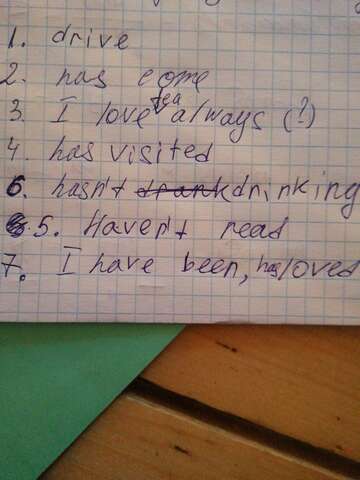 1. drive
2. has come
tea
3. I love always (?)
4. has visited
6. hasn't drank drinking
5. Haven't read
7. I have been, has loved